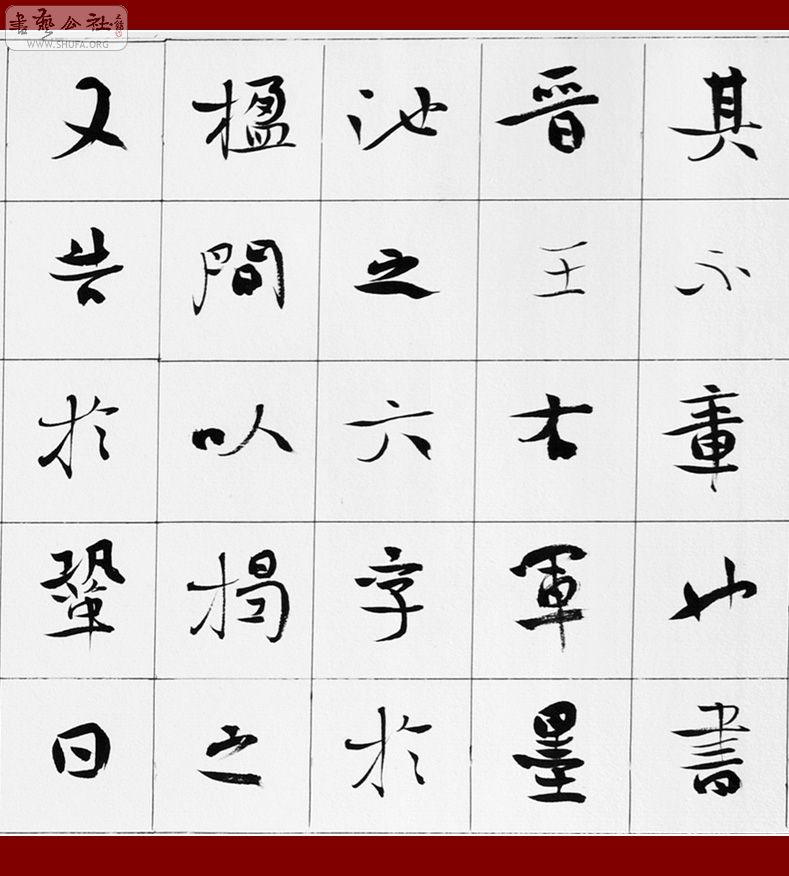 其不章也書
晋王右軍墨
池之六字於
楹間以揭之
又告於鞏曰
書藝公社
WWW.SHUFA.ORG